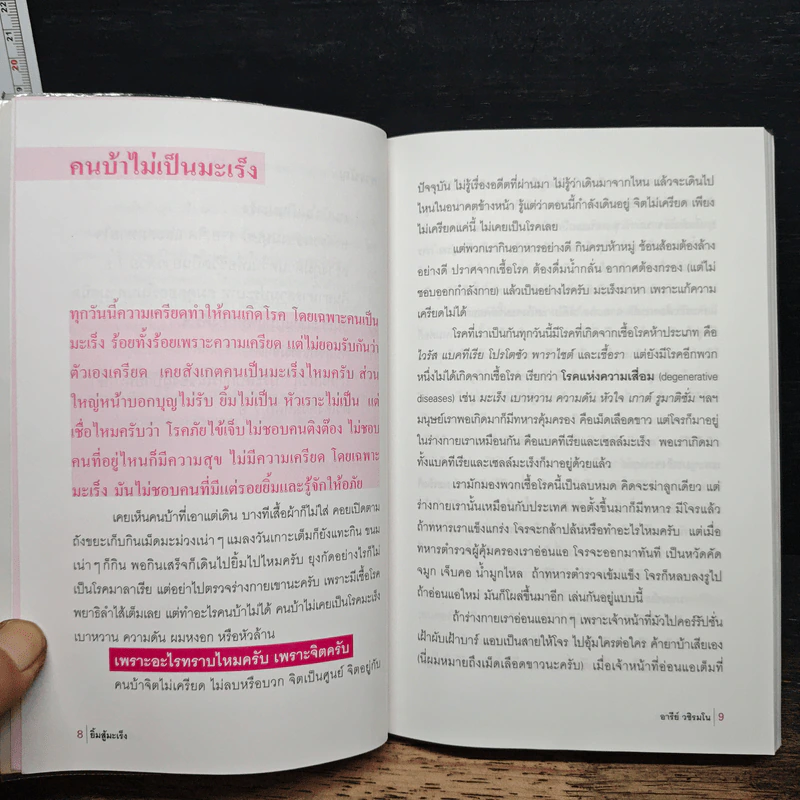 คนบ้าไม่เป็นมะเร็ง
ทุกวันนี้ความเครียดทำให้คนเกิดโรค โดยเฉพาะคนเป็น
มะเร็ง ร้อยทั้งร้อยเพราะความเครียด แต่ไม่ยอมรับกันว่า
ตัวเองเครียด เคยสังเกตคนเป็นมะเร็งไหมครับ ส่วน
ใหญ่หน้าบอกบุญไม่รับ ยิ้มไม่เป็น หัวเราะไม่เป็น แต่
เชื่อไหมครับว่า โรคภัยไข้เจ็บไม่ชอบคนติงต๊อง ไม่ชอบ
คนที่อยู่ไหนก็มีความสุข ไม่มีความเครียด โดยเฉพาะ
มะเร็ง มันไม่ชอบคนที่มีแต่รอยยิ้มและรู้จักให้อภัย
เคยเห็นคนบ้าที่เอาแต่เดิน บางทีเสื้อผ้าก็ไม่ใส่ คอยเปิดตาม
ถังขยะเก็บกินเม็ดมะม่วงเน่าๆ แมลงวันเกาะเต็มก็ยังแทะกิน ขนม
เน่าๆ ก็กิน พอกินเสร็จก็เดินไปยิ้มไปไหมครับ ยุงกัดอย่างไรก็ไม่
เป็นโรคมาลาเรีย แต่อย่าไปตรวจร่างกายเขานะครับ เพราะมีเชื้อโรค
พยาธิลำไส้เต็มเลย แต่ทำอะไรคนบ้าไม่ได้ คนบ้าไม่เคยเป็นโรคมะเร็ง
เบาหวาน ความดัน ผมหงอก หรือหัวล้าน
เพราะอะไรทราบไหมครับ เพราะจิตครับ
คนบ้าจิตไม่เครียด ไม่ลบหรือบวก จิตเป็นศูนย์ จิตอยู่กับ
8 ยิ้มสู้มะเร็ง
ปัจจุบัน ไม่รู้เรื่องอดีตที่ผ่านมา ไม่รู้ว่าเดินมาจากไหน แล้วจะเดินไป
ไหนในอนาคตข้างหน้า รู้แต่ว่าตอนนี้กำลังเดินอยู่ จิตไม่เครียด เพียง
ไม่เครียดแค่นี้ ไม่เคยเป็นโรคเลย
แต่พวกเรากินอาหารอย่างดี กินครบห้าหมู่ ช้อนส้อมต้องล้าง
อย่างดี ปราศจากเชื้อโรค ต้องดื่มน้ำกลั่น อากาศต้องกรอง (แต่ไม่
ชอบออกกำลังกาย) แล้วเป็นอย่างไรครับ มะเร็งมาหา เพราะแก้ความ
เครียดไม่ได้
โรคที่เราเป็นกันทุกวันนี้มีโรคที่เกิดจากเชื้อโรคห้าประเภท คือ
ไวรัส แบคทีเรีย โปรโตซัว พาราไซต์ และเชื้อรา แต่ยังมีโรคอีกพวก
หนึ่งไม่ได้เกิดจากเชื้อโรค เรียกว่า โรคแห่งความเสื่อม (degenerative
diseases) เช่น มะเร็ง เบาหวาน ความดัน หัวใจ เกาต์ รูมาติซั่ม ฯลฯ
มนุษย์เราพอเกิดมาก็มีทหารคุ้มครอง คือเม็ดเลือดขาว แต่โจรก็มาอยู่
ในร่างกายเราเหมือนกัน คือแบคทีเรียและเซลล์มะเร็ง พอเราเกิดมา
ทั้งแบคทีเรียและเซลล์มะเร็งก็มาอยู่ด้วยแล้ว
เรามักมองพวกเชื้อโรคนี้เป็นลบหมด คิดจะฆ่าลูกเดียว แต่
ร่างกายเรานั้นเหมือนกับประเทศ พอตั้งขึ้นมาก็มีทหาร มีโจรแล้ว
ถ้าทหารเราแข็งแกร่ง โจรจะกล้าปล้นหรือทำอะไรไหมครับ แต่เมื่อ
ทหารตำรวจผู้คุ้มครองเราอ่อนแอ โจรจะออกมาทันที เป็นหวัดคัด
จมูก เจ็บคอ น้ำมูกไหล ถ้าทหารตำรวจเข้มแข็ง โจรก็หลบลงรูไป
ถ้าอ่อนแอใหม่ มันก็โผล่ขึ้นมาอีก เล่นกันอยู่แบบนี้
ถ้าร่างกายเราอ่อนแอมากๆ เพราะเจ้าหน้าที่มัวไปคอร์รัปชั่น
เฝ้าผับเฝ้าบาร์ แอบเป็นสายให้โจร ไปอุ้มใครต่อใคร ค้ายาบ้าเสียเอง
(นี่ผมหมายถึงเม็ดเลือดขาวนะครับ) เมื่อเจ้าหน้าที่อ่อนแอเต็มที่
อารีย์ วชิรมโน 9